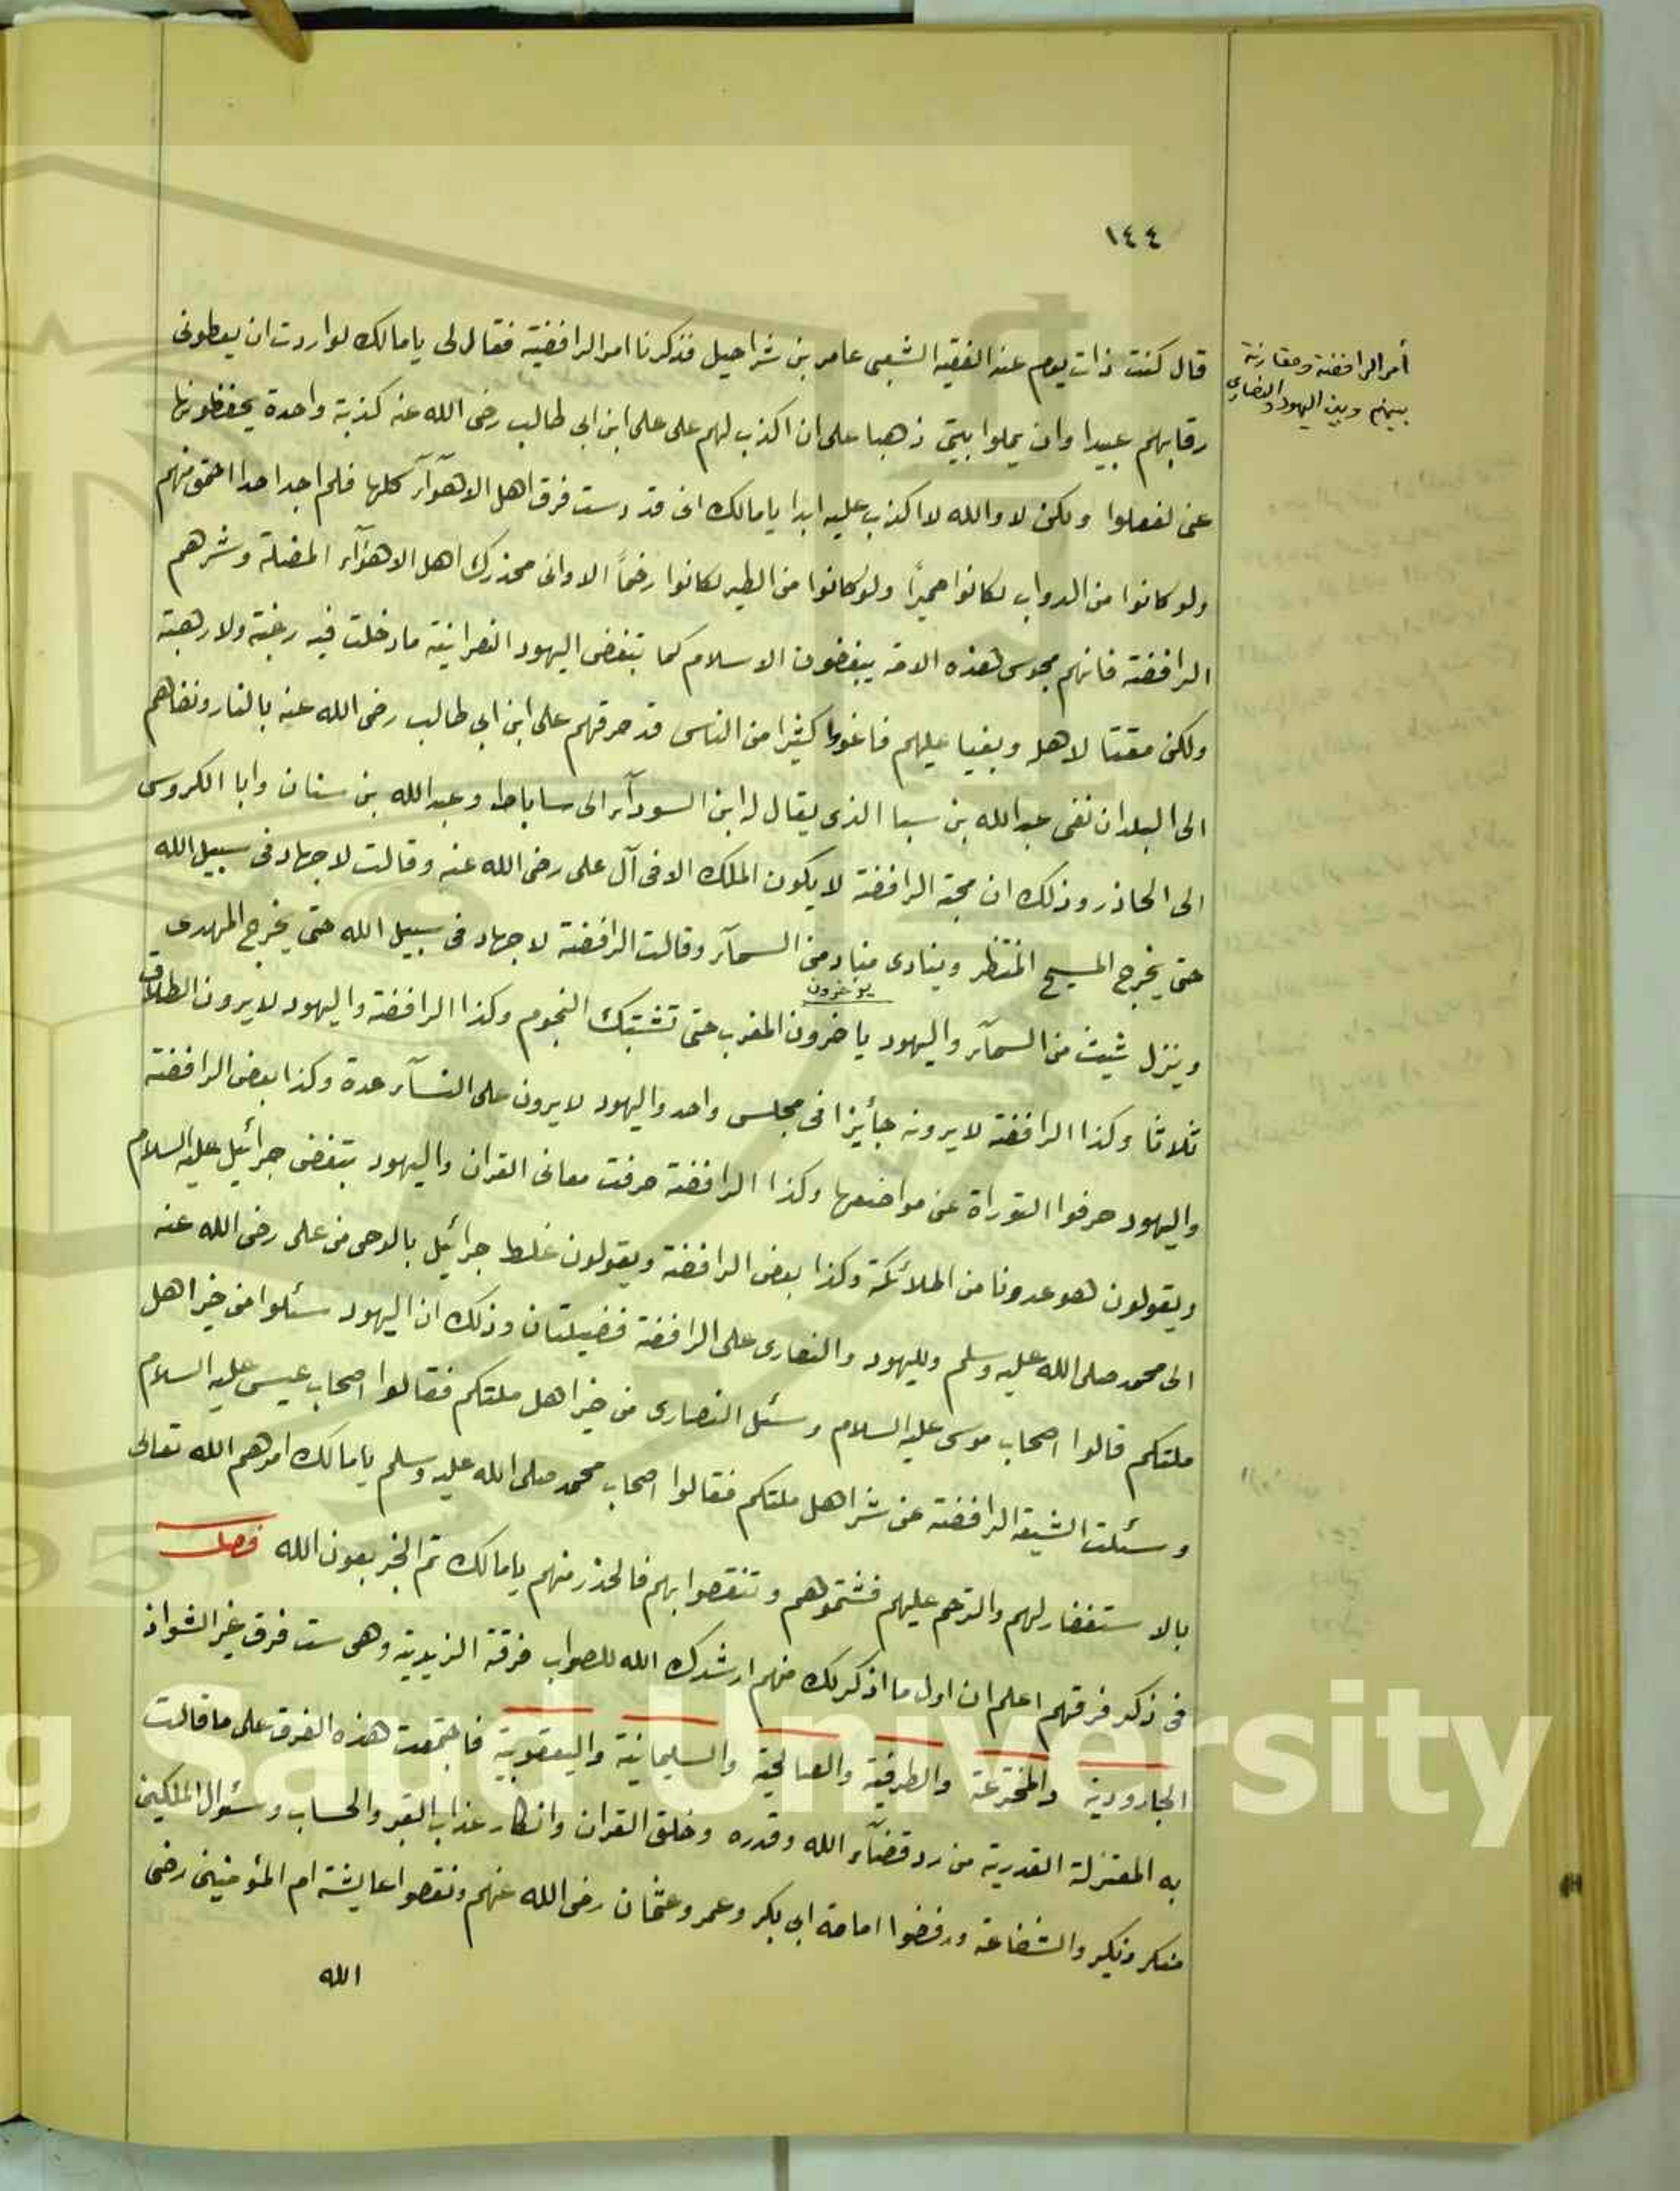 ١٤٤
أمر الرافضة ومقارنة
بينهم وبين اليهود والنصارى
قال كنت ذات يوم عند الفقيه الشعبى عامر بن شراحيل فذكرنا امر الرافضية فقال لى يا مالك لو اردت ان يعطونى
رقابهم عبيدا وان يملوا بيتى ذهبا على ان اكذب لهم على على ابن ابى طالب رضى الله عنه كذبة واحدة يحفظونها
عنى لفعلوا ولكن لا والله لا اكذب عليه ابدا يا مالك انى قد رست فرق اهل الاهوآء كلها فلم اجد احدا احمق منهم
ولو كانوا من الدواب لكانوا حميرًا ولو كانوا من الطير لكانوا رخماً الا وانى محذرك اهل الاهوآء المضلة وشرهم
الرافضة فانهم مجوس هذه الامة يبغضون الاسلام كما تبغض اليهود النصرانية ما دخلت فيه رغبة ولا رهبة
ولكن مقتا لاهله وبغيا عليهم فاغووا كثيرا من الناس قد حرقهم على ابن ابى طالب رضى الله عنه بالنار ونفاهم
الى البلدان نفى عبدالله بن سبا الذى يقال له ابن السودآء الى ساباط وعبدالله بن سنان وابا الكروس
الى الحاذر وذلك ان محبة الرافضة لا يكون الملك الا فى آل على رضى الله عنه وقالت لا جهاد فى سبيل الله
حتى يخرج المسيح المنتظر وينادى مناد من السمآء وقالت الرافضة لا جهاد فى سبيل الله حتى يخرج المهدى
وينزل شيث من السمآء واليهود ياخرون المغرب حتى تشتبك النجوم وكذا الرافضة واليهود لا يرون الطلاق
يوخرون
ثلاثا وكذا الرافضة لا يرونه جائزا فى مجلس واحد واليهود لا يرون على النسآء عدة وكذا بعض الرافضة
واليهود حرفوا التوراة عن مواضعها وكذا الرافضة حرفت معانى القران واليهود تبغض جبرائيل عليه السلام
ويقولون هو عدونا من الملائكة وكذا بعض الرافضة ويقولون غلط جبرائيل بالوحى من على رضى الله عنه
الى محمد صلى الله عليه وسلم ولليهود والنصارى على الرافضة فضيلتان وذلك ان اليهود سئلوا من خير اهل
ملتكم قالوا اصحاب موسى عليه السلام وسئل النصارى من خير اهل ملتكم فقالوا اصحاب عيسى عليه السلام
وسئلت الشيعة الرافضة عن شر اهل ملتكم فقالوا اصحاب محمد صلى الله عليه وسلم يا مالك امرهم الله تعالى
بالاستغفار لهم والترحم عليهم فشتموهم وتنقصوا بهم فالحذر منهم يا مالك تم الخبر بعون الله فصل
فى ذكر فرقهم اعلم ان اول ما اذكر لك منهم ارشدك الله للصواب فرقة الزيدية وهى ست فرق غير الشواذ
الجارودية والمخترعة والطرفية والصالحية والسليمانية واليعقوبية فاجتمعت هذه الفرق على ما قالت
به المعتزلة القدرية من رد قضآء الله وقدره وخلق القران وانكار عذاب القبر والحساب وسئوال الملكين
منكر ونكير والشفاعة ورفضوا امامة ابى بكر وعمر وعثمان رضى الله عنهم ونقصوا عايشة ام المؤمنين رضى
الله
g Saud University